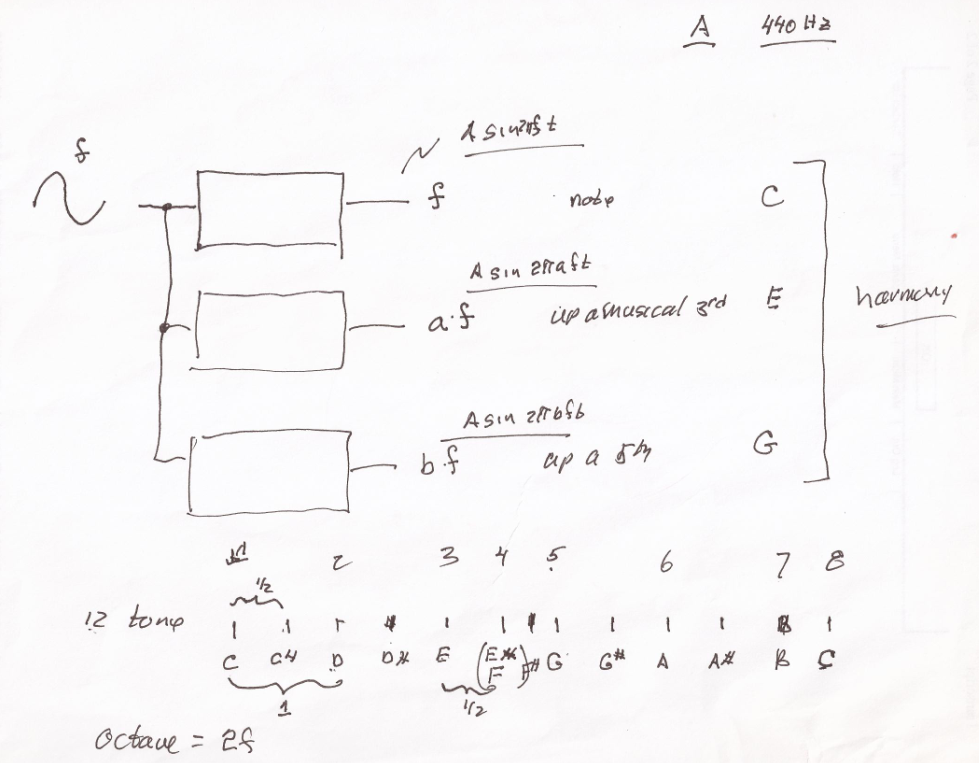 A 440 Hz
f
A sin2πft
f note C
A sin 2πaft
a·f up a musical 3rd E
harmony
A sin 2πbfb
b·f up a 5th G
2 3 4 5 6 7 8
1/2
12 tone
C C# D D# E (E# F) F# G G# A A# B C
1 1/2
Octave = 2f